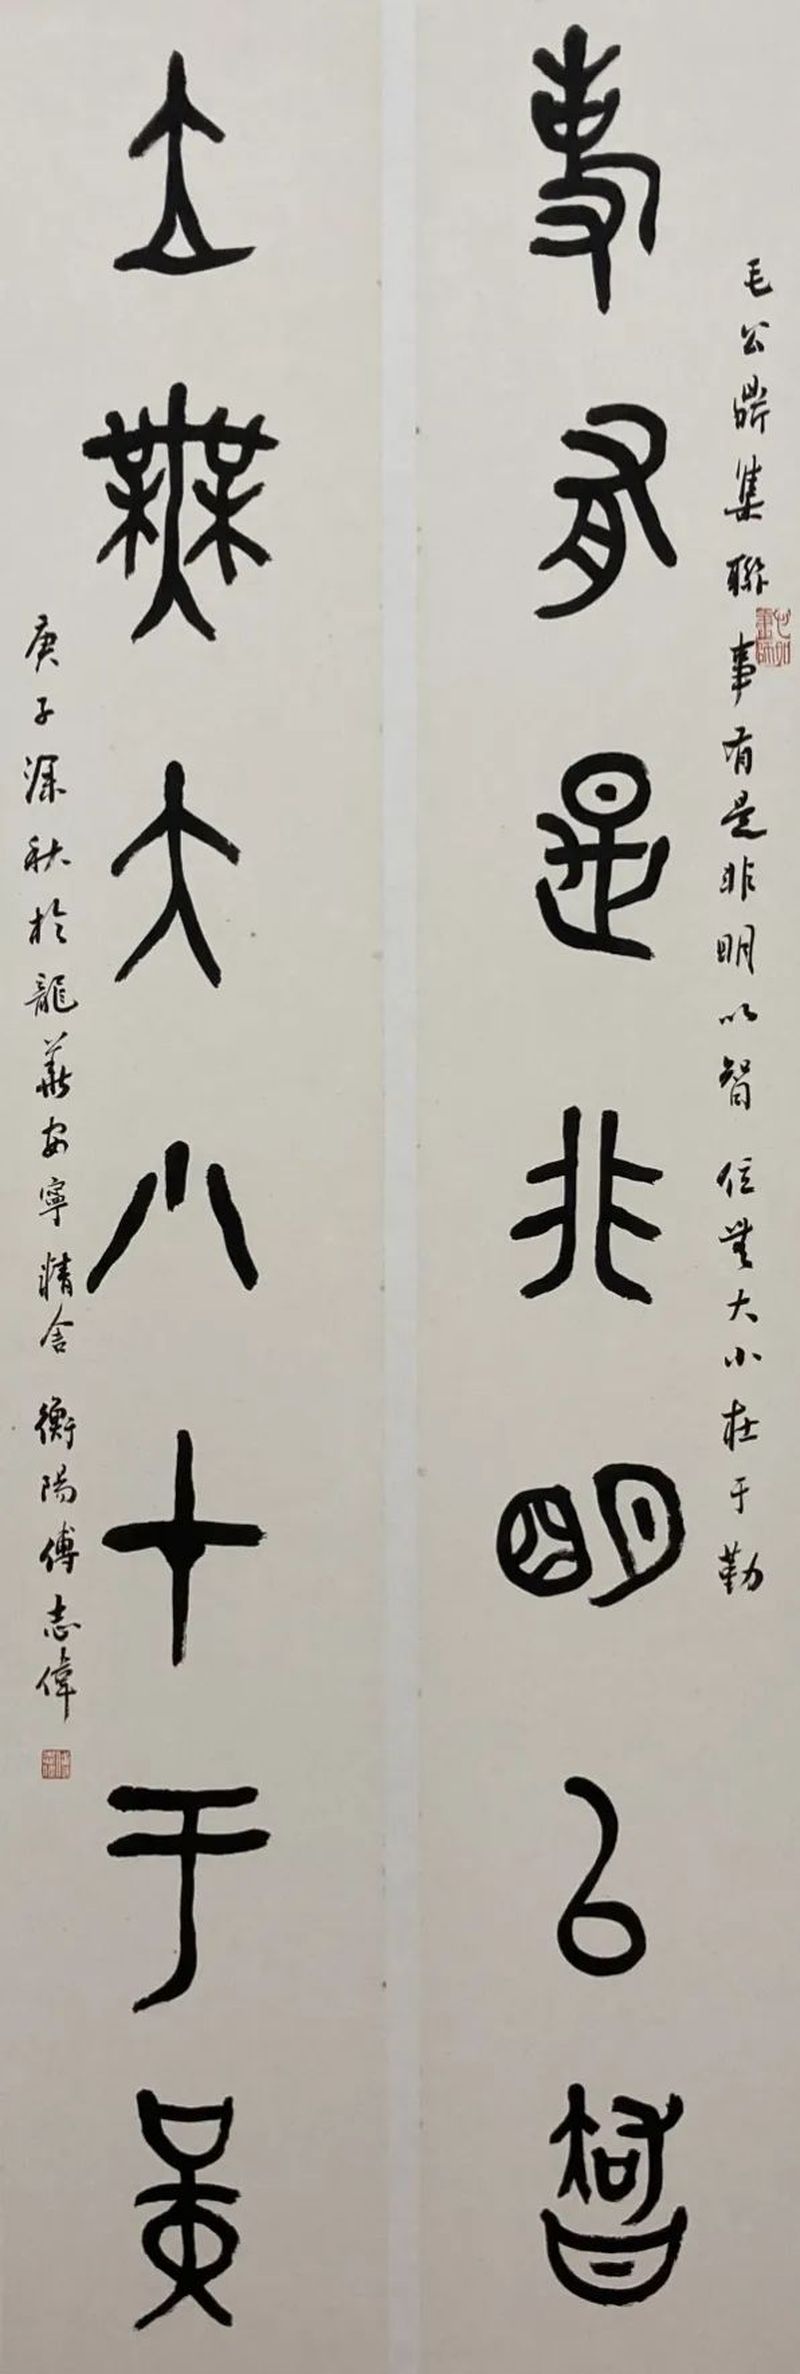 毛公鼎集聯 事有是非明以智 位無大小在于勤
事有是非明以智
位無大小在于勤
庚子深秋於龍華安寧精舍 衡陽傅志偉